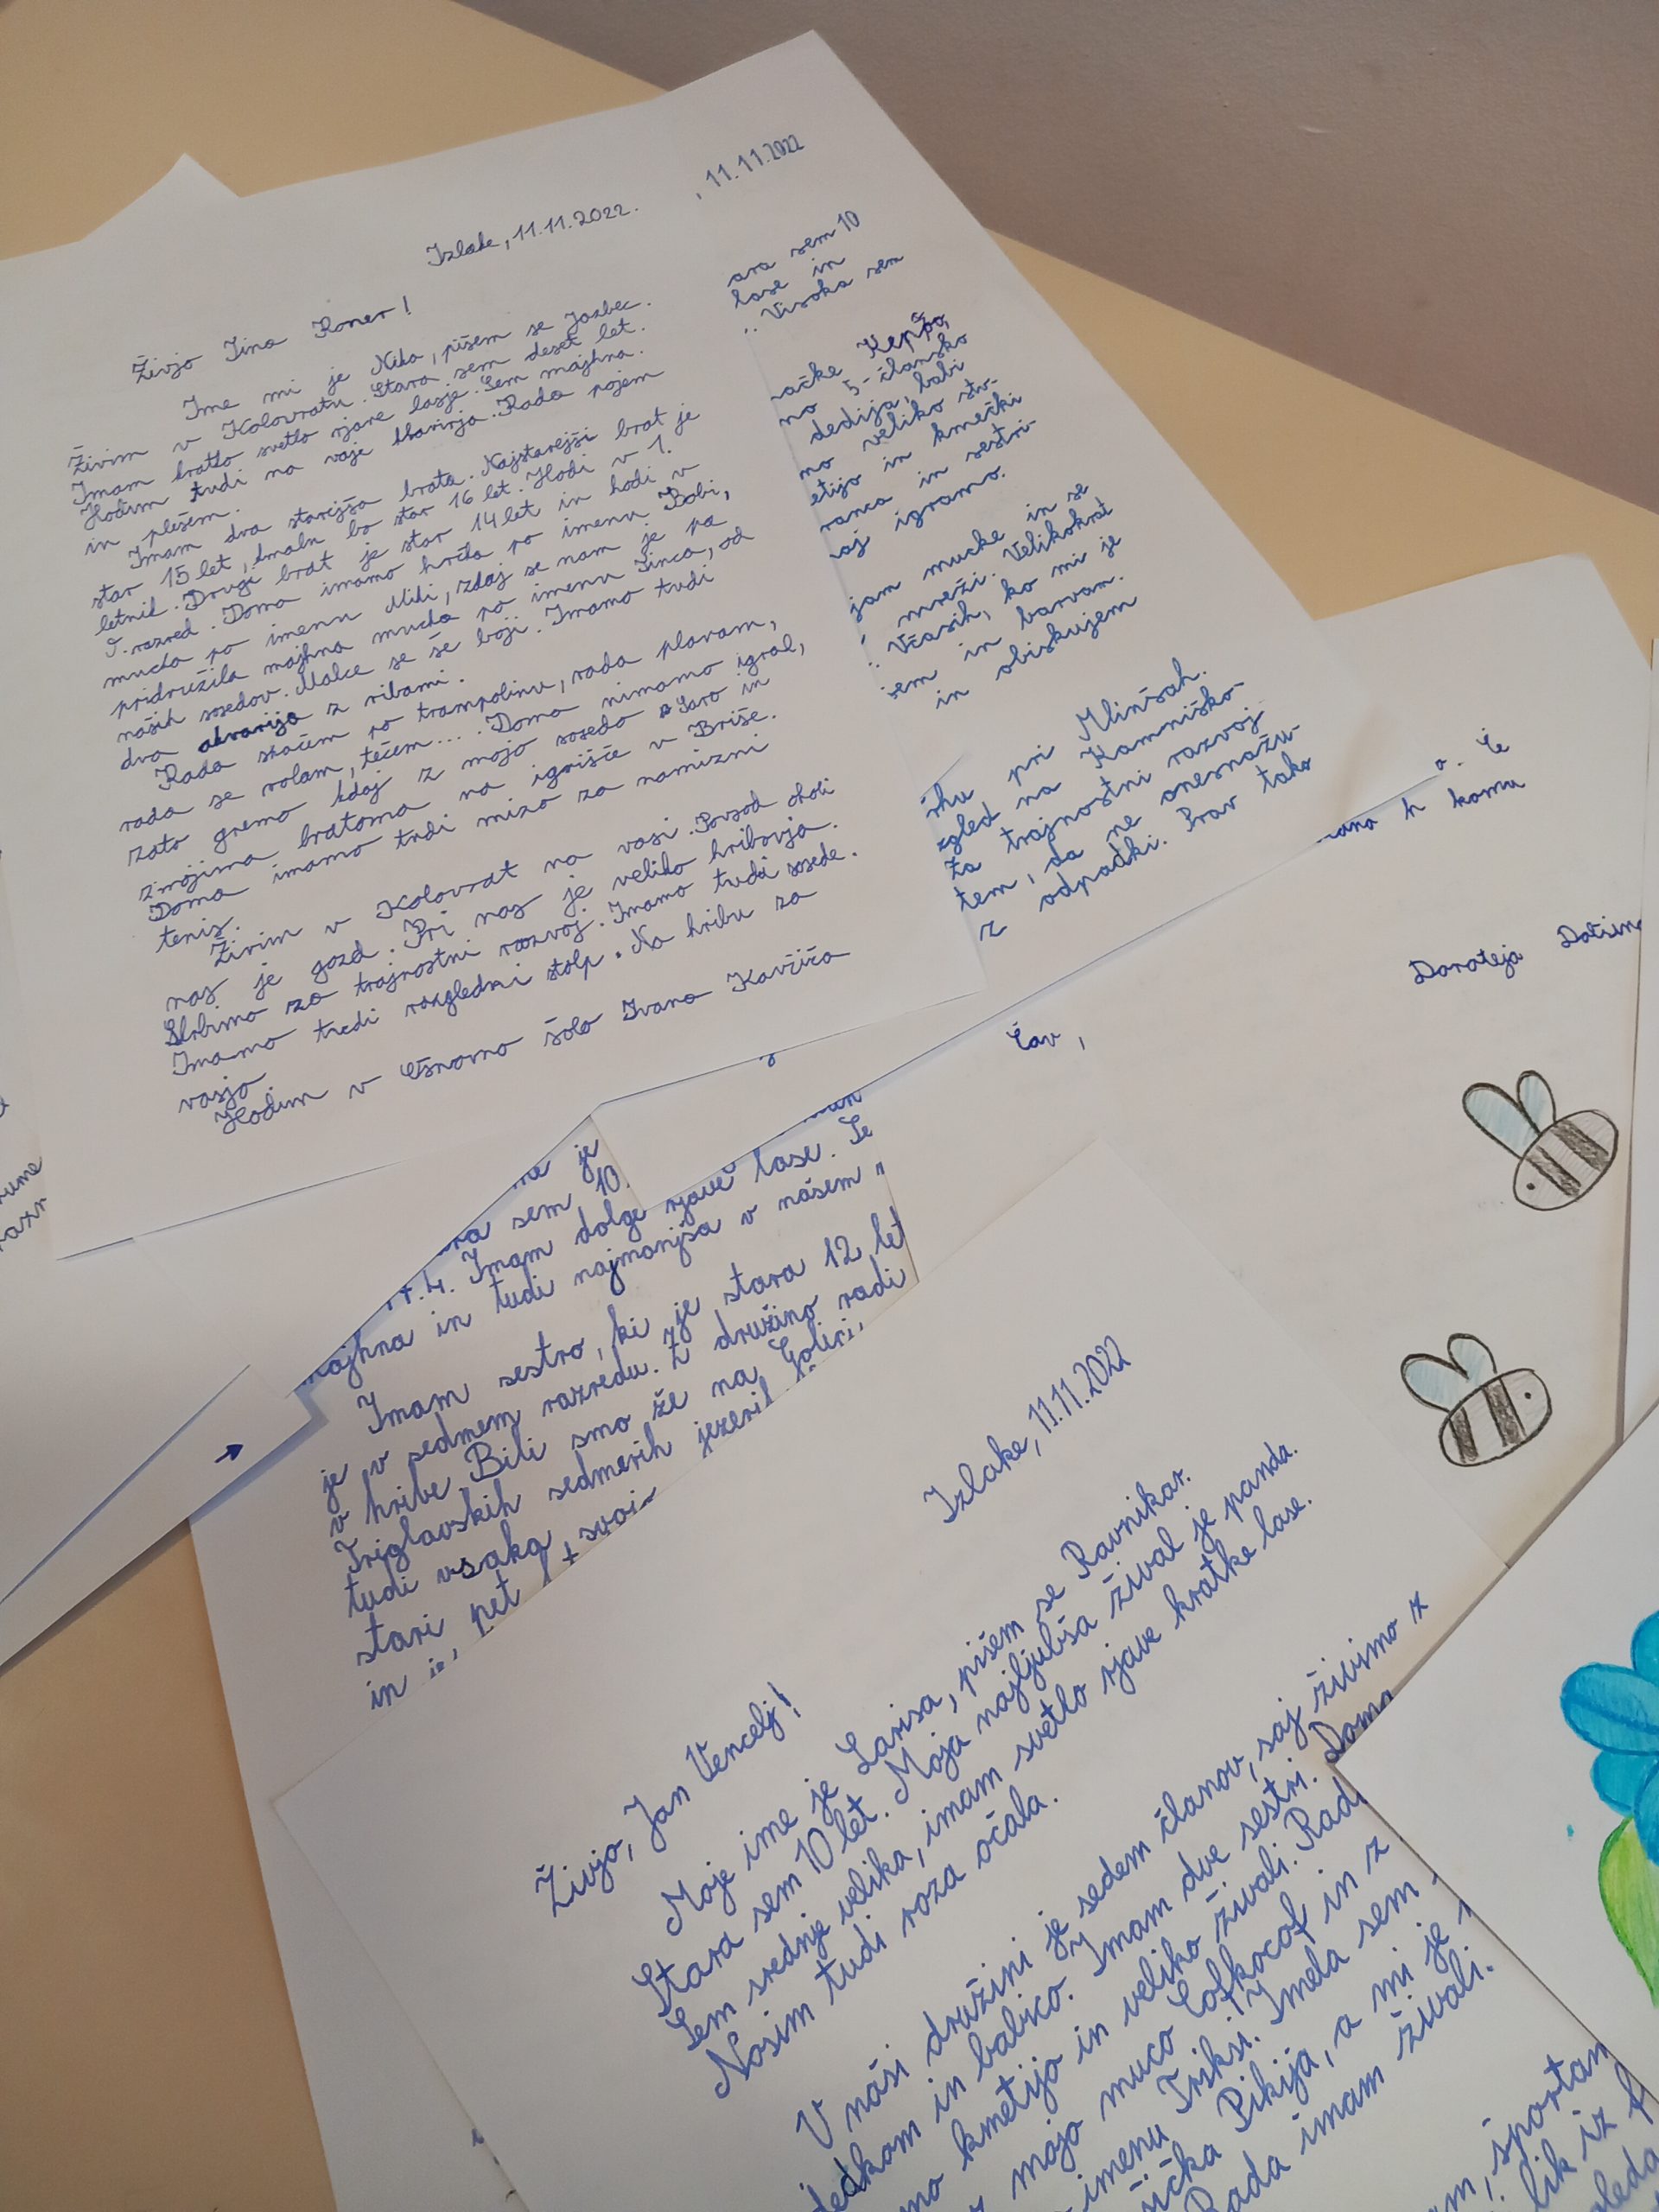 Izlake, 11.11.2022.
Živjo Tina Roner!
Ime mi je Nika, pišem se Jazbec.
Živim v Kolovratu. Stara sem deset let.
Imam kratko svetlo rjave lasje. Sem majhna.
Hodim tudi na vaje klavirja. Rada pojem
in plešem.
Imam dva starejša brata. Najstarejši brat je
star 15 let, kmalu bo star 16 let. Hodi v 1.
letnik. Drugi brat je star 14 let in hodi v
9. razred. Doma imamo hrčka po imenu Bobi,
mucka po imenu Miki, zdaj se nam je pa
pridružila majhna mucka po imenu Tinca, od
naših sosedov. Malce se še boji. Imamo tudi
dva akvarija z ribami.
Rada skačem po trampolinu, rada plavam,
rada se rolam, tečem.... Doma nimamo igral,
zato gremo kdaj z mojo sosedo Saro in
z mojima bratoma na igrišče v Briše.
Doma imamo tudi mizo za namizni
tenis.
Živim v Kolovrat na vasi. Povsod okoli
nas je gozd. Pri nas je veliko hribovja.
Skrbimo za trajnostni razvoj. Imamo tudi sosede.
Imamo tudi razgledni stolp. Na hribu za
vasjo
Hodim v Osnovno šolo Ivana Kavčiča
, 11.11.2022
ara sem 10
lase in
Visoka sem
ačke Kepšo,
mo 5-člansko
dedija, babi
mo veliko stv-
etijo in kmečki
ranca in sestri-
aj igramo.
jam mucke in se
mreži. Velikokrat
Včasih, ko mi je
jem in barvam.
in obiskujem
rhu pri Mlinšah.
zgled na Kamniško-
za trajnostni razvoj
tem, da ne onesnažu-
z odpadki. Prav tako
o. Če
h komu
Doroteja
Čav,
me je
ara sem 10.
4. Imam dolge rjave lase. Se
majhna in tudi najmanjša v našem
Imam sestro, ki je stara 12 let
je v sedmem razredu. Z družino radi
v hribe. Bili smo že na Golici,
Triglavskih sedmerih jezerih
tudi vsaka svoj
stari, pet
in
Izlake, 11.11.2022
Živjo, Jan Vencelj!
Moje ime je Larisa, pišem se Ravnikar.
Stara sem 10 let. Moja najljubša žival je panda.
Sem srednje velika, imam svetlo rjave kratke lase.
Nosim tudi roza očala.
V naši družini je sedem članov, saj živimo z
dedkom in babico. Imam dve sestri. Doma
mo kmetijo in veliko živali. Rad
moja muco Cofkocof in z
imenu Triksi. Imela sem
Pikija, a mi je
Rada imam živali.
m, športan
lik iz